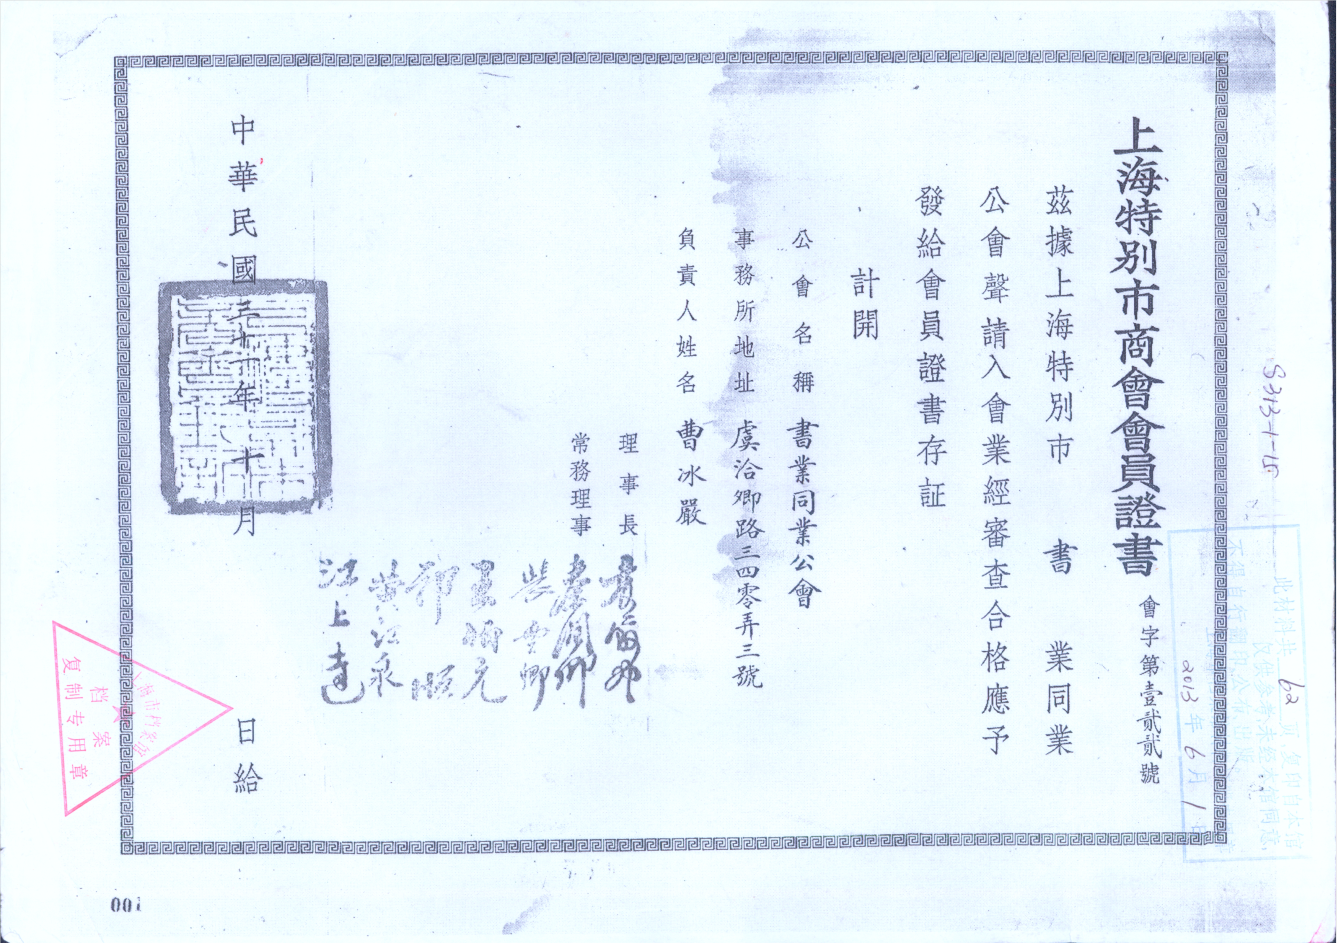 上海特別市商會會員證書
會字第壹貳貳號
茲據上海特別市 書 業同業
公會聲請入會業經審查合格應予
發給會員證書存証
計開
公會名稱 書業同業公會
事務所地址 虞洽卿路三四零弄三號
負責人姓名 曹冰嚴
理事長
常務理事
江上達
中華民國三十 年 十 月 日給
S313-1-15
此材料共 62 页,复印自本馆
仅供参考,未经本馆同意,
不得自行翻印、公布、出版
2013 年 6 月 1 日
档案
复制专用章
001